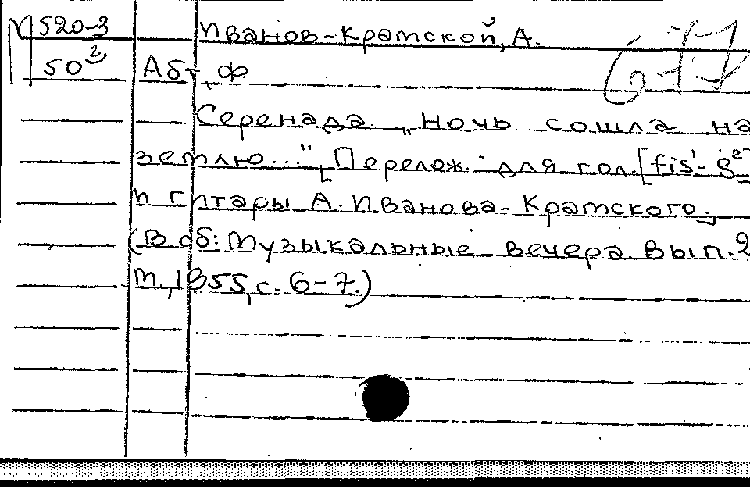 М520-3 Иванов-Крамской, А.
677
50² Абт, Ф
Серенада. „Ночь сошла на
землю..." [Перелож. для гол. [fis¹-g²]
и гитары А. Иванова-Крамского.]
(В сб: Музыкальные вечера вып. 2
М., 1955, с. 6-7.)